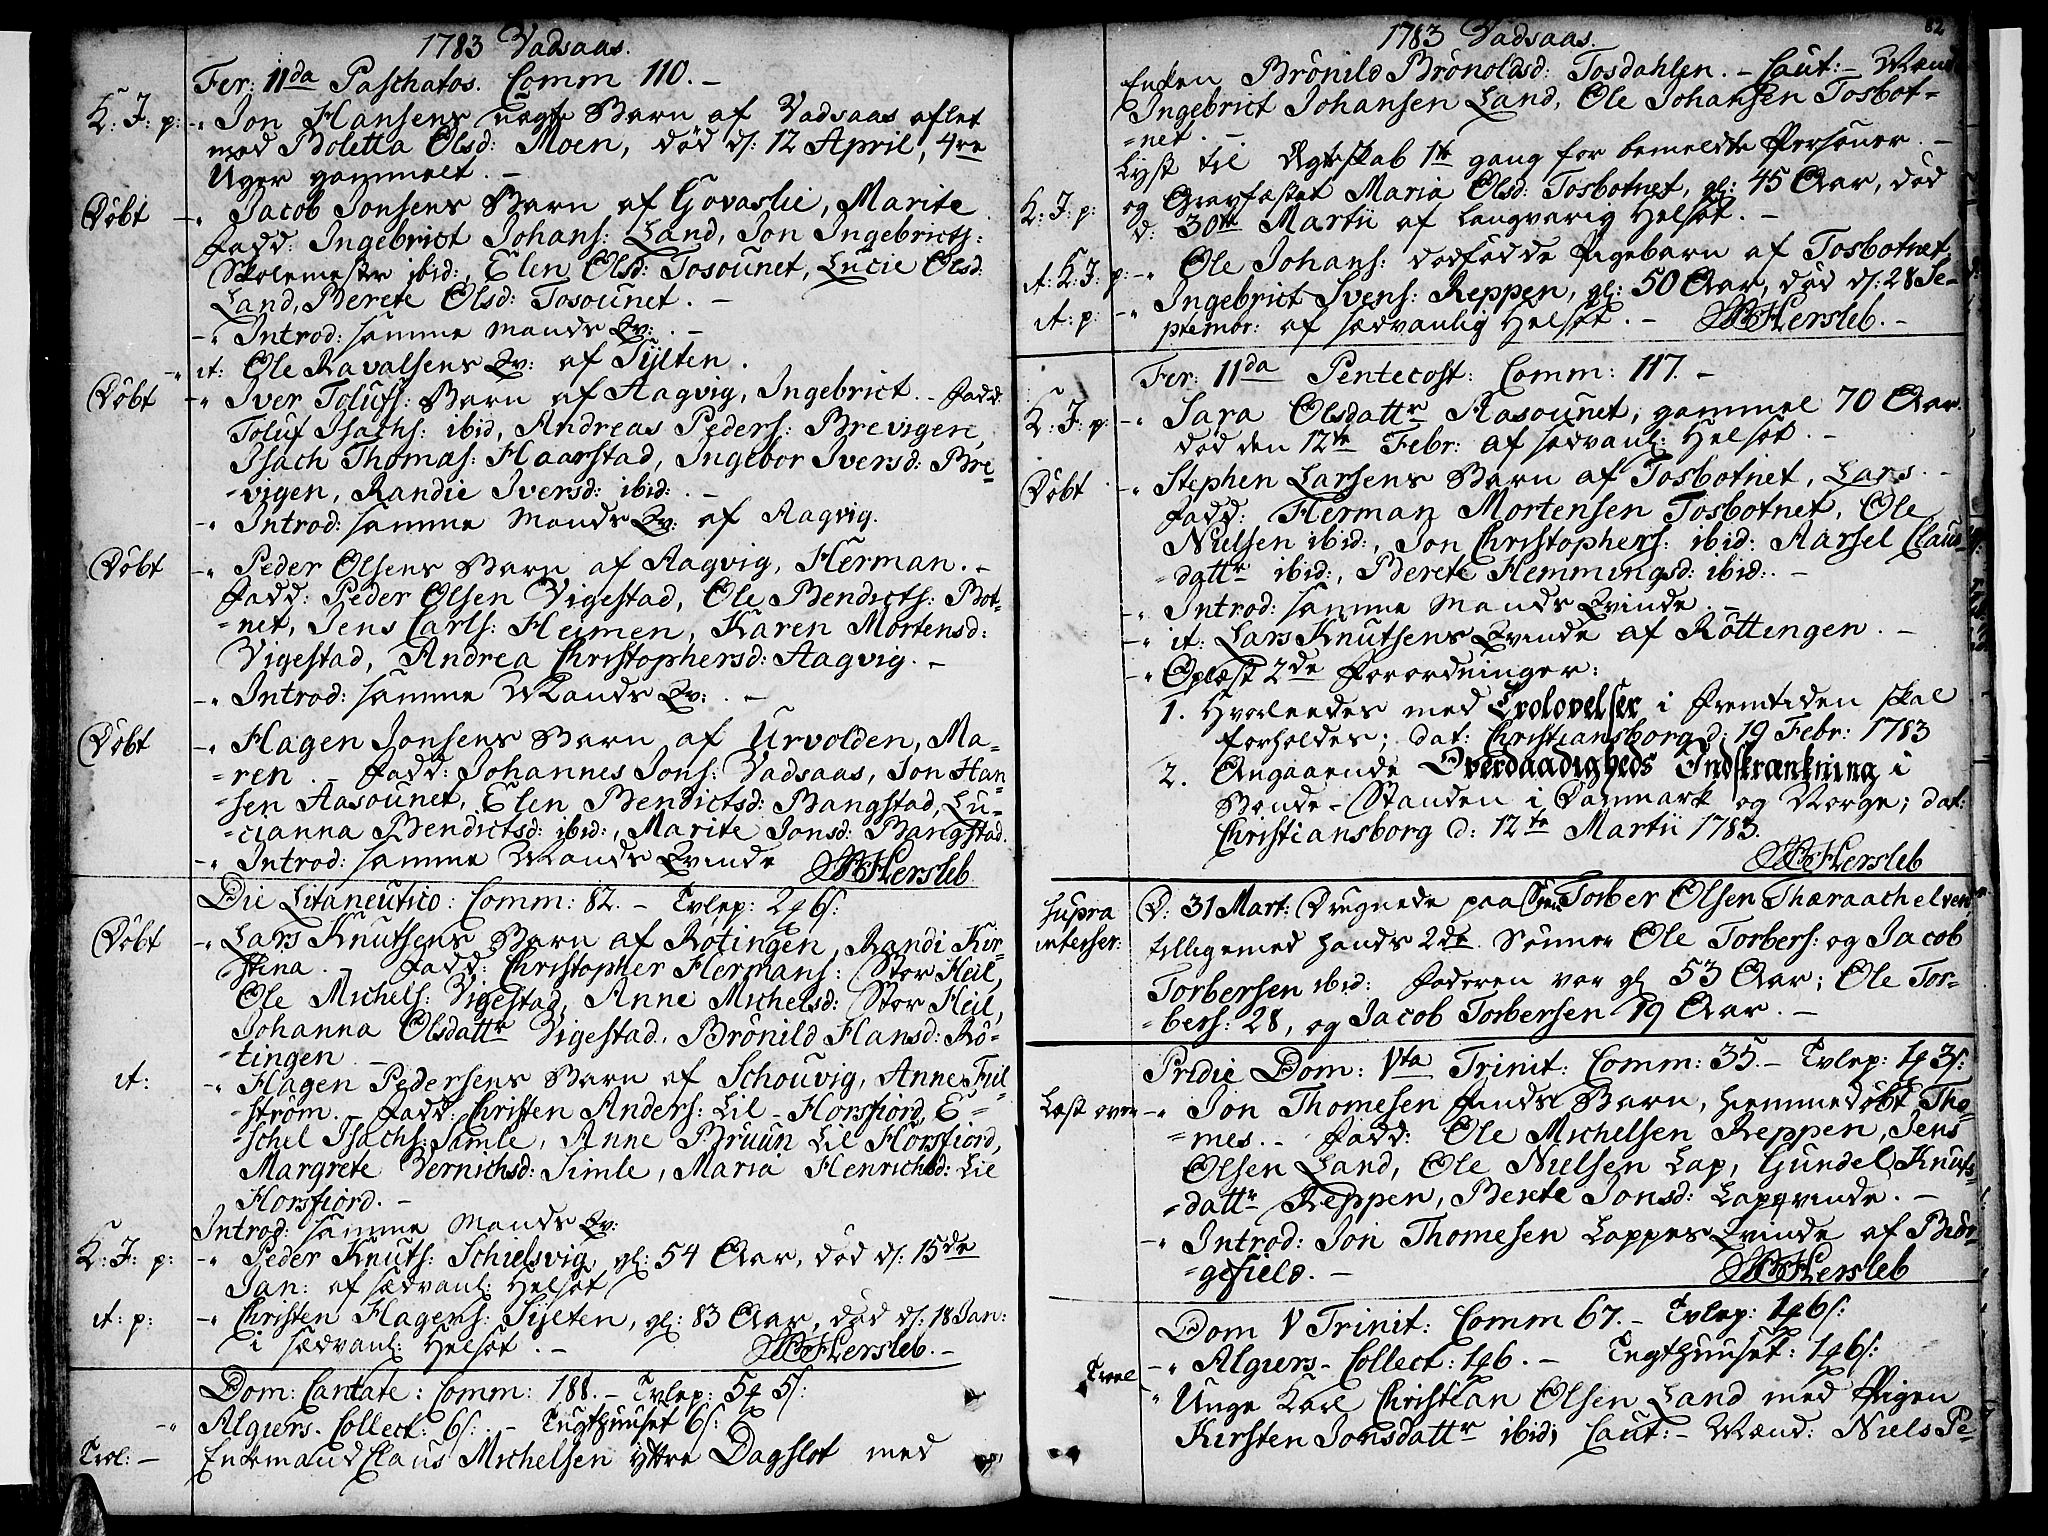 1783 Vadsaas.
Fer: 11da Paschatos. Comm 110. -
K: J: p: -„ Jon Hansens uægte Barn af Vadsaas aflet
med Boletta Olsd: Moen, død d: 12 April, 4re
Uger gammelt. -
Døbt -„ Jacob Jonsens Barn af Govaslie, Marite
Fadd: Ingebrict Johans: Land, Jon Ingebricts:
Skolemester ibid:, Elen Olsd: Tosounet, Lucie Olsd
Land, Berete Olsd: Tosounet. -
-„ Introd: samme Mands Qv: . -
-„ it: Ole Ravalsens Qv: af Sylten.
Døbt -„ Iver Tolufs: Barn af Aagvig, Ingebrict. - Fadd
Toluf Isachs: ibid, Andreas Peders: Brevigen,
Isach Thomæs: Haarstad, Ingebor Iversd: Bre-
-vigen, Randie Iversd: ibid: . -
-„ Introd: samme Mands Qv: af Aagvig.
Døbt -„ Peder Olsens Barn af Aagvig, Herman. -
Fadd: Peder Olsen Vigestad, Ole Bendicts: Bot-
-net, Jens Carls: Heimen, Karen Mortensd:
Vigestad, Andrea Christophersd: Aagvig. -
-„ Introd: samme Mands Qv: . -
Døbt -„ Hagen Jonsens Barn af Urvolden, Ma-
-ren. - Fadd: Johannes Jons: Vadsaas, Jon Han-
-sen Aasounet, Elen Bendictsd: Bangstad, Lu-
-cianna Bendictsd: ibid:, Marite Jonsd: Bangstad.
-„ Introd: samme Mands Qvinde HHersleb
Die Litaneutico: Comm: 82. - Tvlep: 2 6s.
Døbt -„ Lars Knutsens Barn af Røtingen, Randi Kir-
stina. - Fadd: Christopher Hermans: Stor Heil,
Ole Michels: Vigestad, Anne Michelsd: Stor Heil,
Johanna Olsdattr Vigestad, Brønild Hansd: Rø-
-tingen. -
it: -„ Hagen Pedersens Barn af Schouvig, Anne Fiil-
-strøm. - Fadd: Christen Anders: Lil-Horsfiord, E-
-schel Isachs: Simle, Anne Bruun Lil Horsfiord,
Margrete Bernichsd: Simle, Maria Henrichsd: Lil
Horsfiord. -
Introd: samme Mands Qv:
K: J: p: -„ Peder Knuts: Schielsvig, gl: 54 Aar, død d: 15de
Jan: af sædvanl: Helsot
it: p: -„ Christen Hagens: Sylten, gl: 83 Aar, død d: 18 Jan:
i sædvanl: Helsot. - HHersleb. -
Dom: Cantate: Comm: 188. - Tvlep: 5 5s:
-„ Algiers. Collect: 6s: . - Tugthuuset 6s:
Trol: - Enkemand Claus Michelsen yttre Dagslot med
82
1783 Vadsaas.
Enken Brønild Brønoldsd: Tosdahlen. - Caut: - Mænd
Ingebrict Johansen Land, Ole Johansen Tosbot-
-net. -
Lyst til Ægteskab 1te gang for bemeldte Personer. -
K: J: p: og Gravfæstet Maria Olsd: Tosbotnet, gl: 45 Aar, død
d: 30te Martii af langvarig Helsot. -
it: K: J: p: -„ Ole Johans: dødfødde Pigebarn af Tosbotnet,
it: p: -„ Ingebrict Svens: Reppen, gl: 50 Aar, død d: 28 Se-
ptembr: af sædvanlig Helsot. - HHersleb. -
Fer: 11da Pentecost: Comm: 117. -
K: J: p: -„ Sara Olsdattr Aasounet, gammel 70 Aar.
død den 12te Febr: af sædvanl: Helsot. -
Døbt -„ Stephen Larsens Barn af Tosbotnet, Lars. -
Fadd: Herman Mortensen Tosbotnet, Ole
Nielsen ibid:, Jon Christophers: ibid: Aarsel Claus-
-dattr ibid:, Berete Hemmingsd: ibid: . -
-„ Introd: samme Mands Qvinde. -
-„ it: Lars Knutsens Qvinde af Røttingen. -
-„ Oplæst 2de Forordninger:
1. Hvorleedes med Trolovelser i Fremtiden skal
forholdes; dat: Christiansborg d: 19 Febr: 1783
2. Angaaende Overdaadigheds Indskrænkning i
Bonde-Standen i Danmark og Norge; dat:
Christiansborg d: 12te Martii 1783.
HHersleb
supra
interser: D: 31 Mart: Drugnede paa Søen Torber Olsen Thæraachelven
tilligemed hands 2de Sønner Ole Torbers: og Jacob
Torbersen ibid: Faderen var gl 53 Aar; Ole Tor-
-bers: 28, og Jacob Torbersen 19 Aar. -
Pridie Dom: Vta Trinit: Comm: 35. - Tvlep: 1 3s:
Læst over -„ Jon Thomesen Finds Barn, hiemmedøbt Tho-
-mes. - Fadd: Ole Michelsen Reppen, Jens
Olsen Land, Ole Nielsen Lap, Gundel Knuts-
-dattr Reppen, Berete Jonsd: Lapqvinde. -
-„ Introd: Jon Thomesen Lappes Qvinde af Biør-
-gefield. - HHersleb
Dom V Trinit: Comm 67. - Tvlep: 1 6s:
-„ Algiers-Collect: 1 6. - Tugthuuset: 1 6s:
Trol -„ Unge Karl Christian Olsen Land med Pigen
Kirsten Jonsdattr ibid; Caut: - Mænd: Niels Pe-